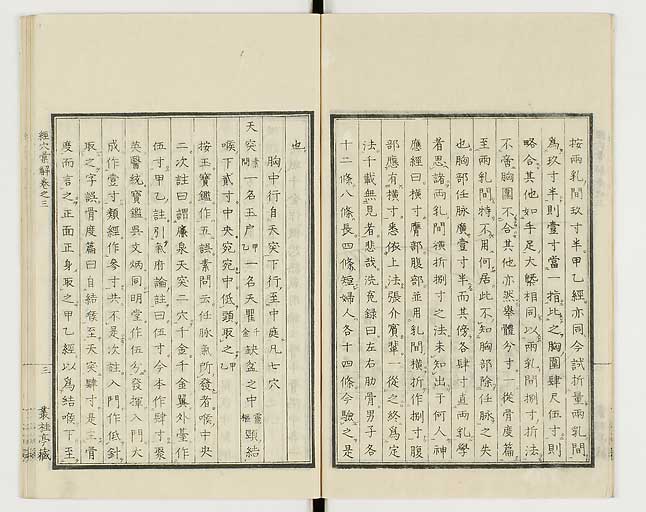 按兩乳間玖寸半甲乙經亦同今試折量兩乳間
爲玖寸半則壹寸當一指此之胸圍肆尺伍寸則
略合其他如手足大槩相同以兩乳間捌寸折法
不啻胸圍不合其他亦然舉體分寸一從骨度篇
至兩乳間特不用何居此不知胸部除任脉之失
也胸部任脉廣壹寸半而其傍各肆寸直兩乳學
者思諸兩乳間橫折捌寸之法未知出于何人神
應經曰橫寸膺部腹部並用乳間橫折作捌寸腹
部應有橫寸悉依上法張介賓輩一從之終爲定
法千載無見者悲哉洗寃録曰左右肋骨男子各
十二條八條長四條短婦人各十四條今驗之是
也
胸中行自天突下行至中庭凡七穴
天突素問一名玉户甲乙一名天瞿千金缺盆之中靈樞頸結
喉下貳寸中央宛宛中低頭取之甲乙
按玉寶鑑作五誤素問云任脉氣所發者喉中央
二次註曰謂廉泉天突二穴千金千金翼外臺作
伍寸甲乙註引氣府論註曰伍寸今本作肆寸聚
英醫統寶鑑吳文炳同明堂作伍分發揮入門大
成作壹寸類經作參寸共不是次註入門作低針
取之字誤骨度篇曰自結喉至天突肆寸是三骨
度而言之正面正身取之甲乙經以爲結喉下至
經穴彙解卷之三
三
叢桂亭藏